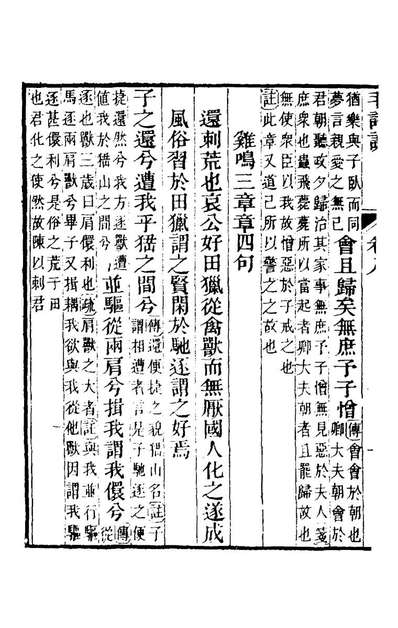 猶樂與子臥而同
夢言親愛之無已
會且歸矣無庶予子憎
傳會會於朝也
卿大夫朝會於
君朝聽政夕歸治其家事無庶予子憎無見惡於夫人箋
庶衆也蟲飛薨薨所以當起者卿大夫朝者且罷歸故也
無使衆臣以我故憎惡於子戒之也
註此章又道已所以警之之故也
雞鳴三章章四句
還刺荒也哀公好田獵從禽獸而無厭國人化之遂成
風俗習於田獵謂之賢閑於馳逐謂之好焉
子之還兮遭我乎峱之間兮
傳還便捷之貌峱山名註子
謂相遭者言是子馳逐之便
捷還然兮我方逐獸遭
值我於峱山之間兮
並驅從兩肩兮揖我謂我儇兮
傳
從
逐也獸三歲曰肩儇利也疏肩獸之大者註與我並行驅
馬逐兩肩獸兮畢子又揖耦我欲與我從他獸因謂我驅
逐甚儇利兮是俗之荒于田
也君化之使然故陳以刺君